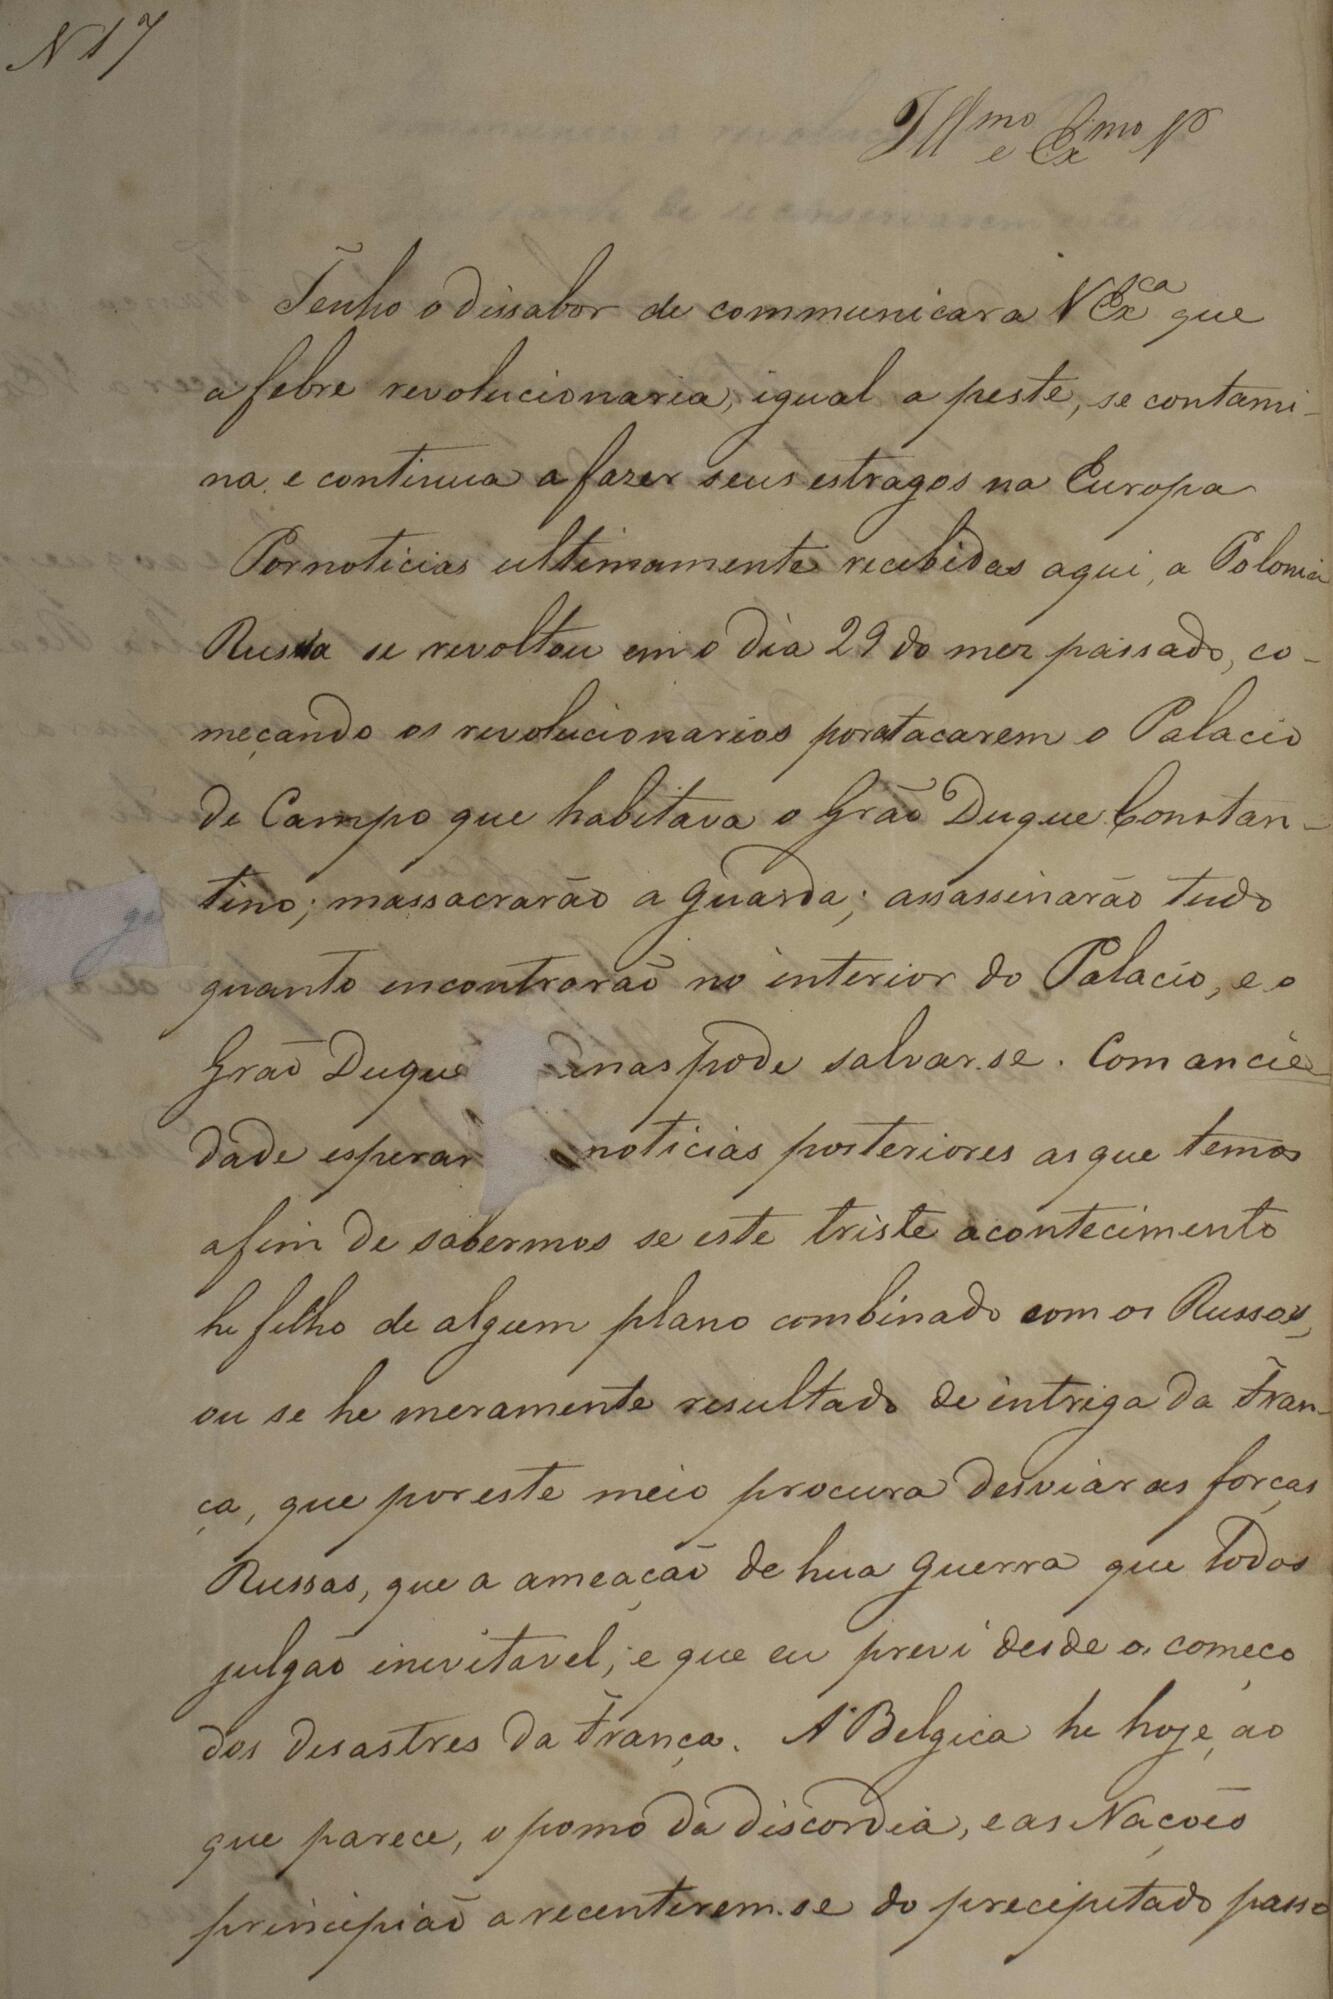 N 17
Illmo e Exmo Sr
Tenho o dissabor de communicar a V Exca que
a febre revolucionaria, igual a peste, se contami-
na e continua a fazer seus estragos na Europa
Por noticias ultimamente recebidas aqui, a Polonia
Russa se revoltou em o dia 29 do mez passado, co-
meçando os revolucionarios por atacarem o Palacio
de Campo que habitava o Grão Duque Constan-
tino; massacrarão a guarda; assassinarão tudo
quanto encontrarão no interior do Palacio, e o
Grão Duque enas pode salvar-se. Com ancie-
dade esperar noticias posteriores as que temos
afim de sabermos se este triste acontecimento
he filho de algum plano combinado com os Russos,
ou se he meramente resultado de intriga da Fran-
ça, que por este meio procura desviar as forças
Russas, que a ameaçaõ de hua guerra que todos
julgão inevitavel; e que eu previ desde o começo
dos desastres da França. A Belgica he hoje, ao
que parece, o pomo da discordia, e as Naçoẽs
principiaõ a recentirem-se do precipitado passo